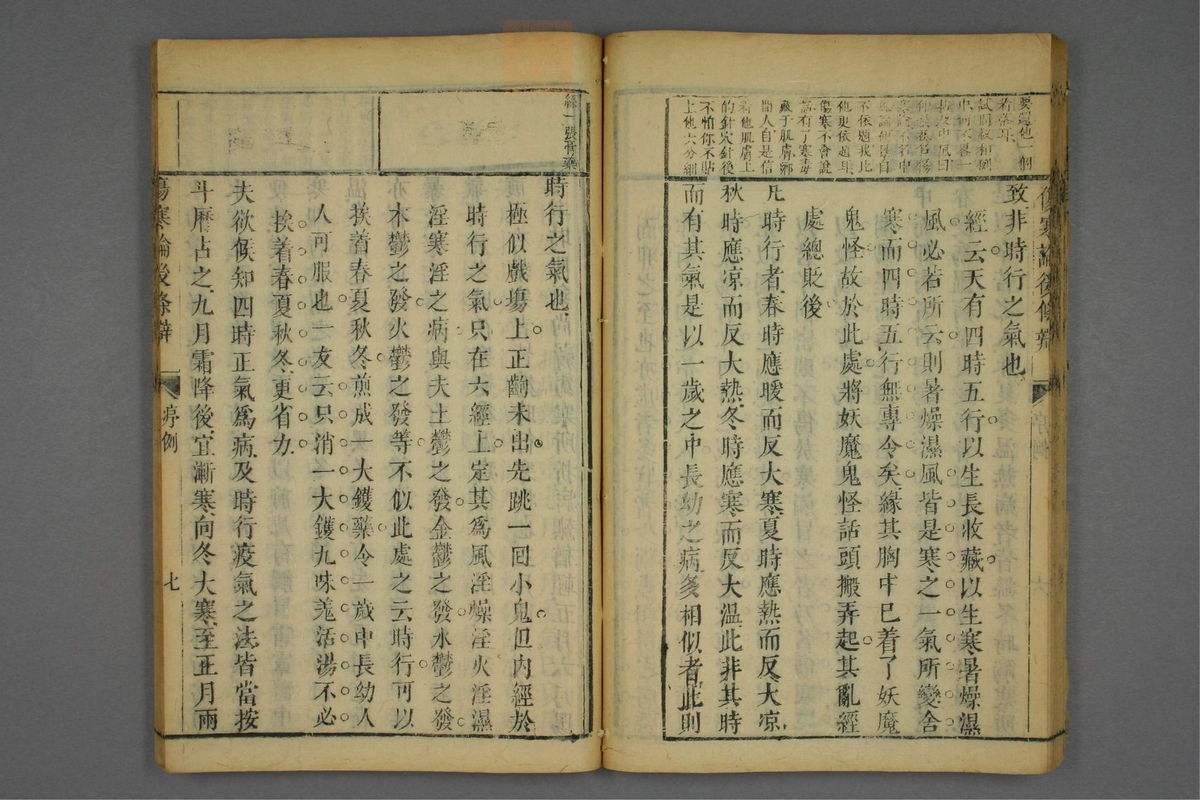 傷寒論後條辯
要還他一個
不怕你不貼
上他六分細
的針穴針後
看他肌膚上
間人自是信
藏于肌膚鄉
話有了寒毒
傷寒不會說
他更依題
不依題我比
致非時行之氣也
經云天有四時五行以生長收藏以生寒暑燥濕
風必若所云則暑燥濕風皆是寒之一氣所變舍
寒而四時五行無專令矣緣其胸中已着了妖魔
鬼怪故於此處將妖魔鬼怪話頭搬弄起其亂經
處總貶後
凡時行者春時應暖而反大寒夏時應熱而反大凉
秋時應凉而反大熱冬時應寒而反大温此非其時
而有其氣是以一歲之中長幼之病多相似者此則
絲一張膏藥
時行之氣也
極似戲塲上正齣未出先跳一囘小鬼但內經於
時行之氣只在六經上定其爲風淫燥淫火淫濕
淫寒淫之病與夫土鬱之發金鬱之發水鬱之發
木鬱之發火鬱之發等不似此處之云時行可以
挨着春夏秋冬煎成一大鑊藥令一歲中長幼人
人可服也一友云只消一大鑊九味羗活湯不必
挨着春夏秋冬更省力
夫欲候知四時正氣爲病及時行疫氣之法皆當按
斗曆占之九月霜降後宜漸寒向冬大寒至正月雨
傷寒論後條辯
序例
七